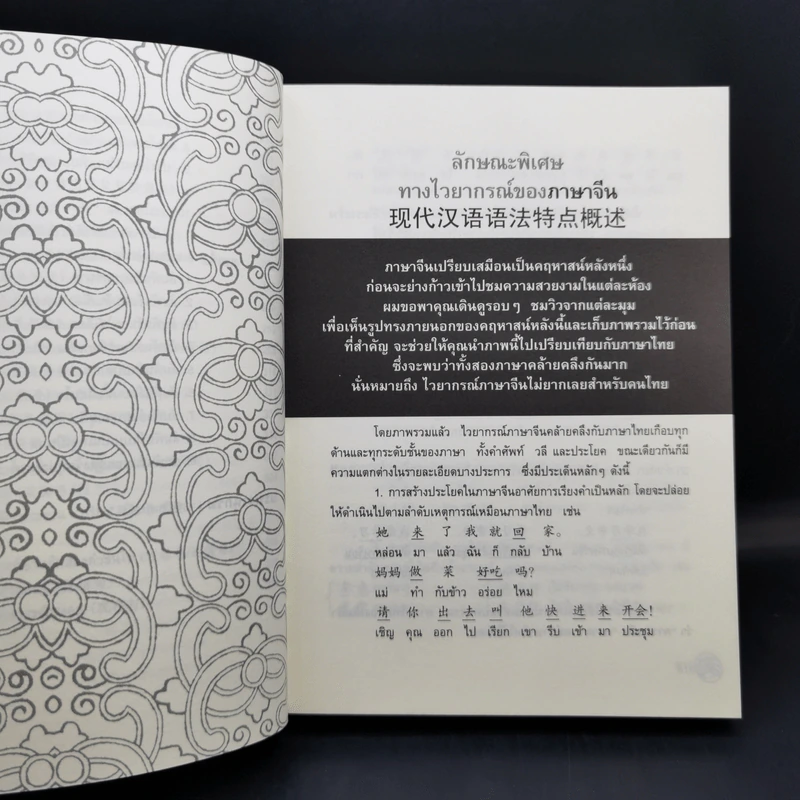 ลักษณะพิเศษ
ทางไวยากรณ์ของภาษาจีน
现代汉语语法特点概述
ภาษาจีนเปรียบเสมือนเป็นคฤหาสน์หลังหนึ่ง
ก่อนจะย่างก้าวเข้าไปชมความสวยงามในแต่ละห้อง
ผมขอพาคุณเดินดูรอบๆ ชมวิวจากแต่ละมุม
เพื่อเห็นรูปทรงภายนอกของคฤหาสน์หลังนี้และเก็บภาพรวมไว้ก่อน
ที่สำคัญ จะช่วยให้คุณนำภาพนี้ไปเปรียบเทียบกับภาษาไทย
ซึ่งจะพบว่าทั้งสองภาษาคล้ายคลึงกันมาก
นั่นหมายถึง ไวยากรณ์ภาษาจีนไม่ยากเลยสำหรับคนไทย
โดยภาพรวมแล้ว ไวยากรณ์ภาษาจีนคล้ายคลึงกับภาษาไทยเกือบทุก
ด้านและทุกระดับชั้นของภาษา ทั้งคำศัพท์ วลี และประโยค ขณะเดียวกันก็มี
ความแตกต่างในรายละเอียดบางประการ ซึ่งมีประเด็นหลักๆ ดังนี้
1. การสร้างประโยคในภาษาจีนอาศัยการเรียงคำเป็นหลัก โดยจะปล่อย
ให้ดำเนินไปตามลำดับเหตุการณ์เหมือนภาษาไทย เช่น
她 来 了 我 就 回 家。
หล่อน มา แล้ว ฉัน ก็ กลับ บ้าน
妈妈 做 菜 好吃 吗?
แม่ ทำ กับข้าว อร่อย ไหม
请 你 出 去 叫 他 快 进 来 开会!
เชิญ คุณ ออก ไป เรียก เขา รีบ เข้า มา ประชุม